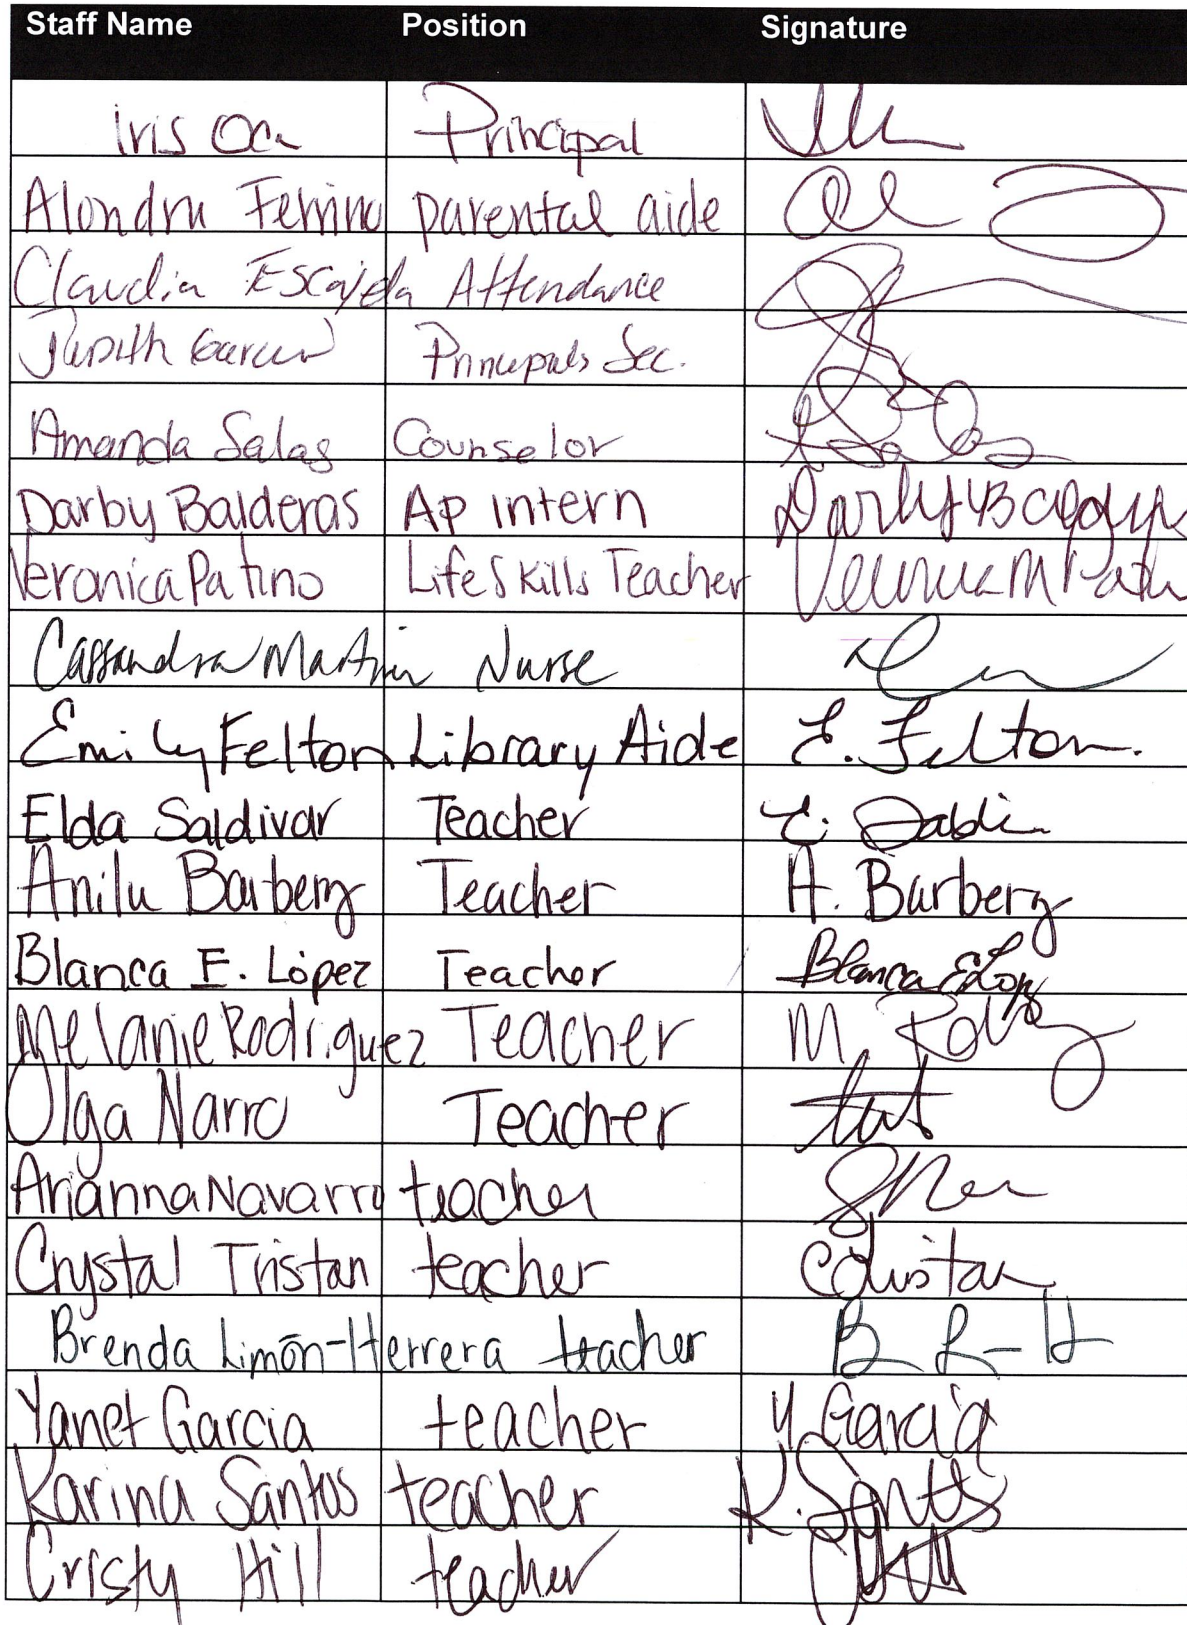 Staff Name Position Signature
Iris Oca Principal
Alondra Ferrino parental aide
Claudia Escajeda Attendance
Judith Garcia Principals Sec.
Amanda Salas Counselor
Darby Balderas AP intern Darby Balderas
Veronica Patino Life Skills Teacher Veronica M Patin
Cassandra Martin Nurse
Emily Felton Library Aide E. Felton.
Elda Saldivar Teacher E. Saldi
Anilu Barberg Teacher A. Barberg
Blanca E. López Teacher Blanca E Lopz
Melanie Rodriguez Teacher M.
Olga Narro Teacher
Arianna Navarro teacher
Crystal Tristan teacher
Brenda Limón-Herrera teacher B L-H
Yanet Garcia teacher Y. Garcia
Karina Santos teacher K. Santos
Cristy Hill teacher